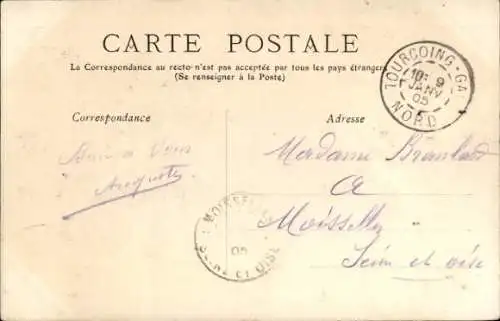 CARTE POSTALE
La Correspondance au recto n'est pas acceptée par tous les pays étrangers
(Se renseigner à la Poste)
TOURCOING-GA
10: 9
JANV
05
NORD
Correspondance
Adresse
à Vous
Auguste
Madame
a
Moisselles
Seine et oise
MOISSELLES
05
SEINE ET OISE